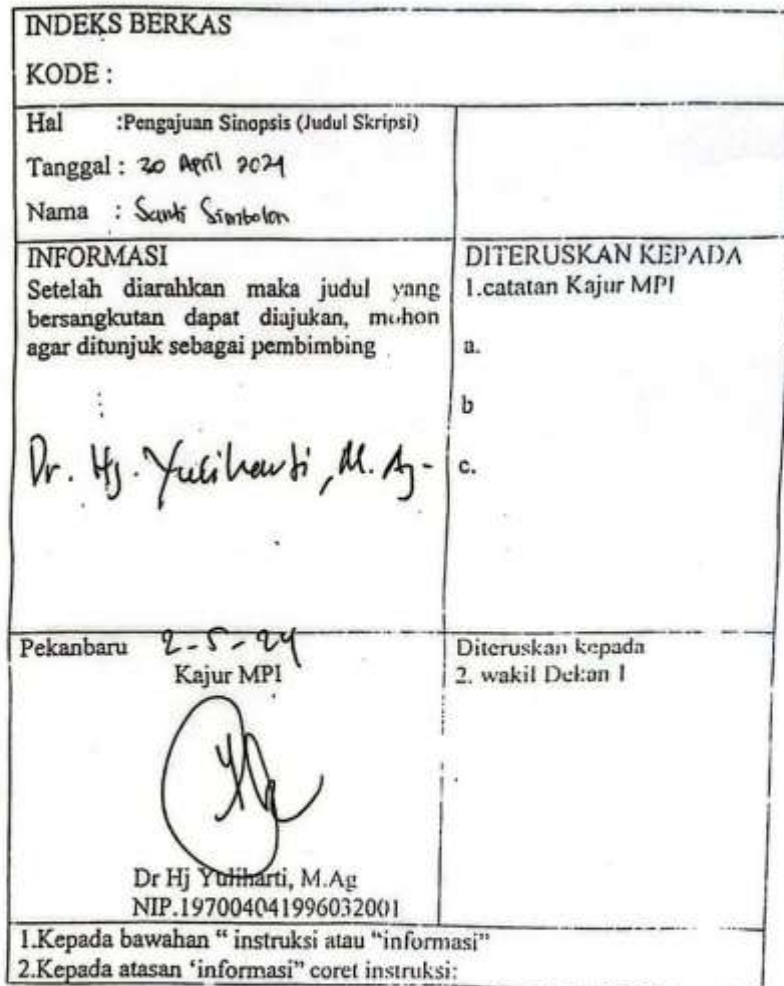 INDEKS BERKAS
KODE :
Hal :Pengajuan Sinopsis (Judul Skripsi)
Tanggal : 30 April 2024
Nama : Santi Simbolon
INFORMASI
Setelah diarahkan maka judul yang
bersangkutan dapat diajukan, mohon
agar ditunjuk sebagai pembimbing
Dr. Hj. Yuliharti, M. Ag-
DITERUSKAN KEPADA
1.catatan Kajur MPI
a.
b
c.
Pekanbaru 2-5-24
Kajur MPI
Dr Hj Yuliharti, M.Ag
NIP.197004041996032001
Diteruskan kepada
2. wakil Dekan I
1.Kepada bawahan “ instruksi atau “informasi”
2.Kepada atasan ‘informasi” coret instruksi: